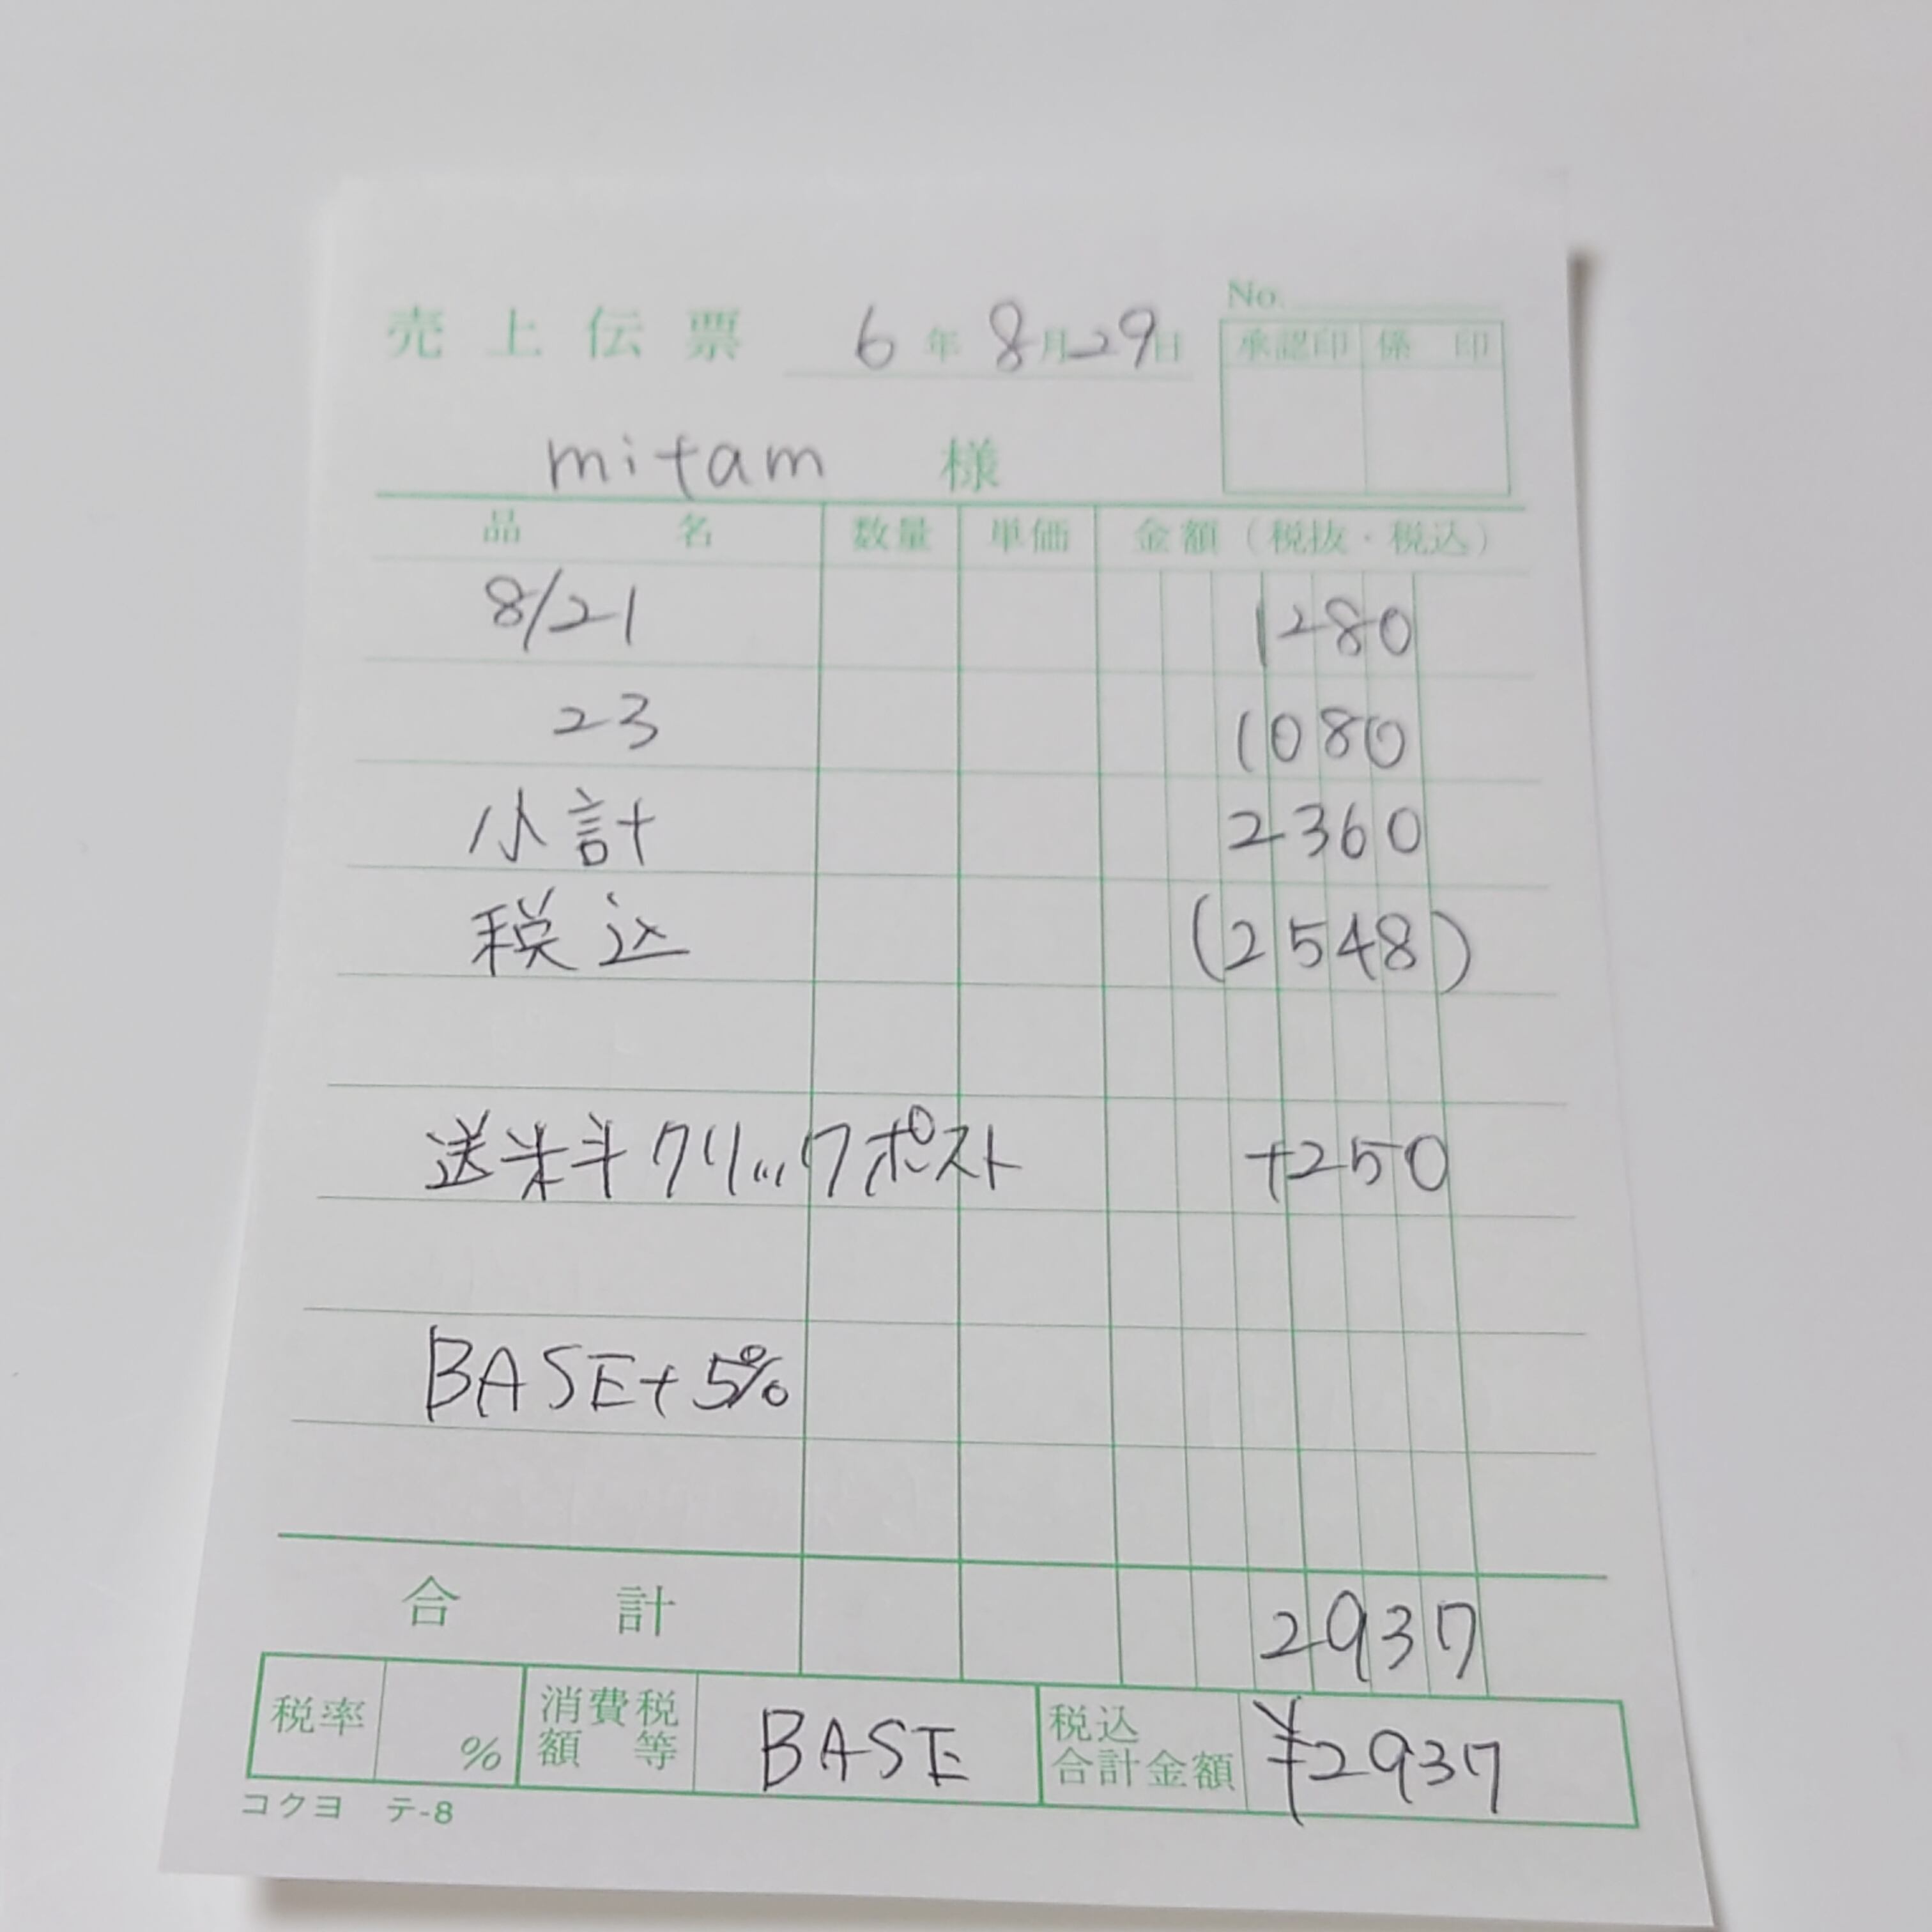 No.
売上伝票 6年8月29日
承認印 係印
mitam 様
品名 数量 単価 金額（税抜・税込）
8/21 1280
23 1080
小計 2360
税込 (2548)
送料クリックポスト +250
BASE+5%
合計 2937
税率 % 消費税額等 BASE 税込合計金額 ¥2937
コクヨ テ-8